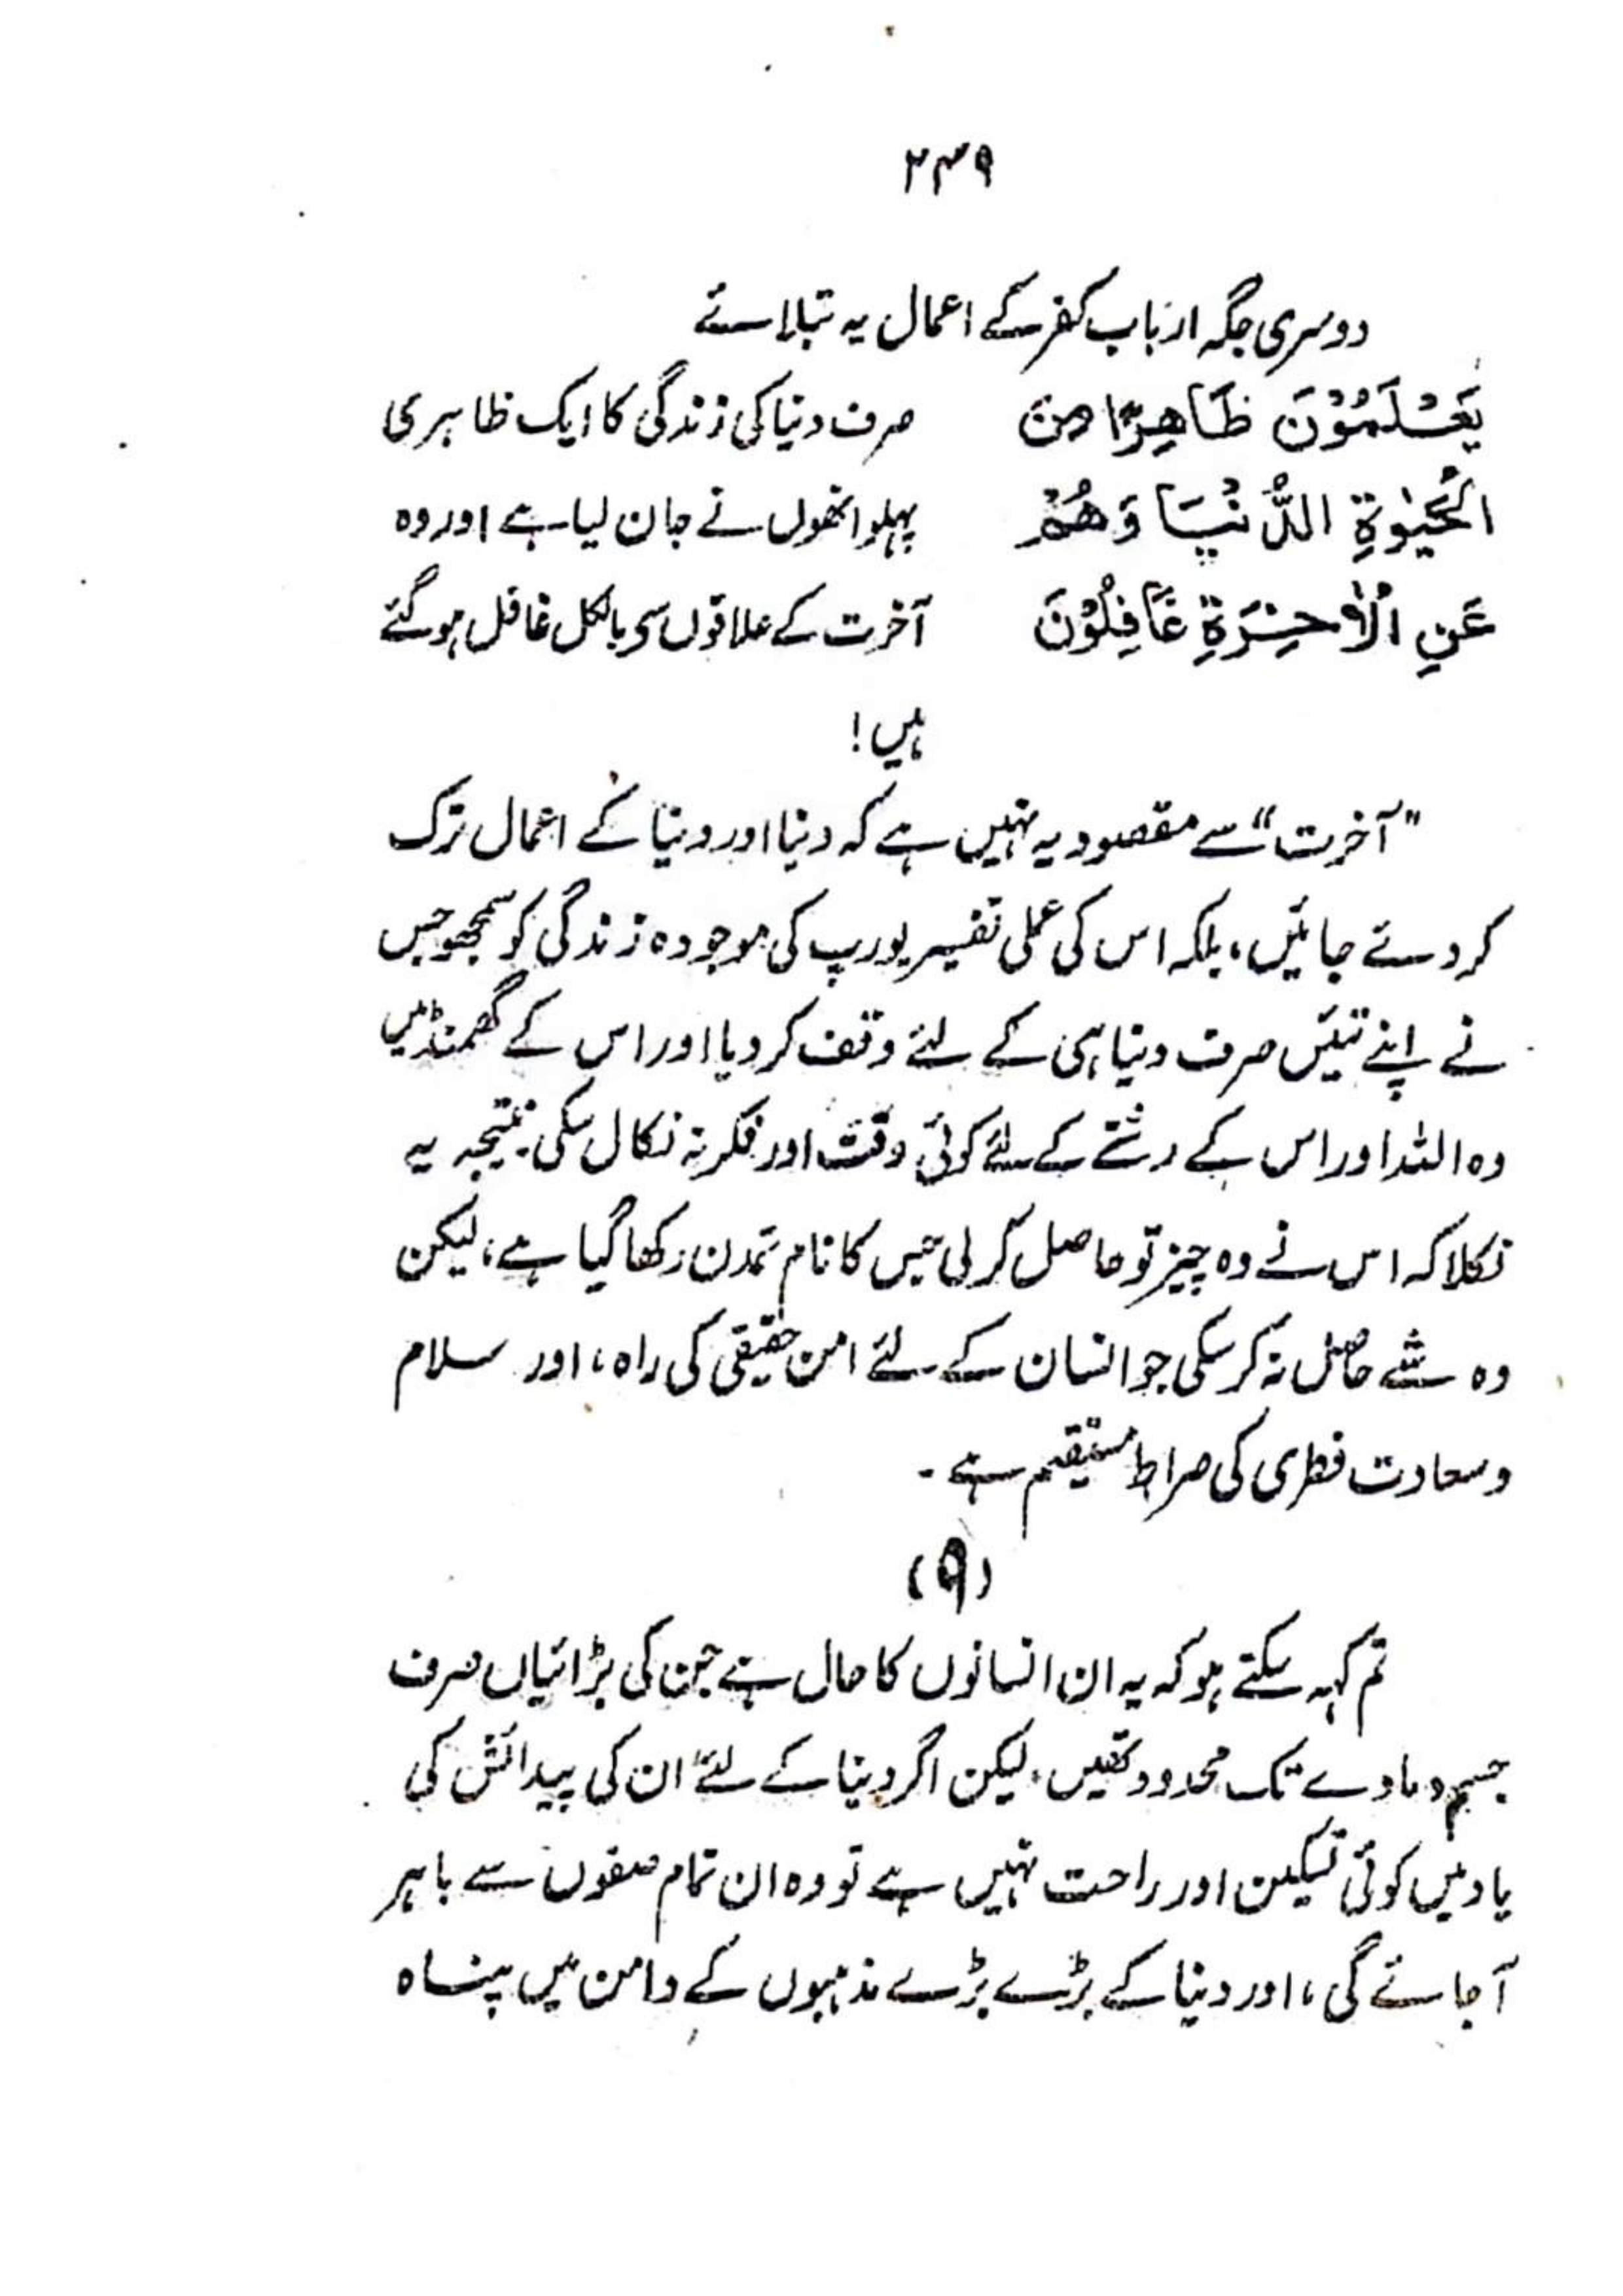 ۲۳۹
دوسری جگہ ارباب کفر کے اعمال یہ بتلائے
یَعْلَمُوْنَ ظَاهِرًا مِنَ صرف دنیا کی زندگی کا ایک ظاہری
الْحَیٰوةِ الدُّنْیَا وَهُمْ پہلو انھوں نے جان لیا ہے اور وہ
عَنِ الْاٰخِرَةِ غَافِلُوْنَ آخرت کے علاقوں سے بالکل غافل ہو گئے
ہیں!
"آخرت" سے مقصود یہ نہیں ہے کہ دنیا اور دنیا کے اعمال ترک
کر دئے جائیں، بلکہ اس کی عملی تفسیر یورپ کی موجودہ زندگی کو سمجھو جس
نے اپنے تئیں صرف دنیا ہی کے لئے وقف کر دیا اور اس کے گھمنڈ میں
وہ اللہ اور اس کے رشتے کے لئے کوئی وقت اور فکر نہ نکال سکی۔ نتیجہ یہ
نکلا کہ اس نے وہ چیز تو حاصل کر لی جس کا نام تمدن رکھا گیا ہے، لیکن
وہ شے حاصل نہ کر سکی جو انسان کے لئے امن حقیقی کی راہ، اور سلام
و سعادت فطری کی صراط مستقیم ہے۔
(۹)
تم کہہ سکتے ہو کہ یہ ان انسانوں کا حال ہے جن کی بڑائیاں صرف
جسم و مادے تک محدود تھیں، لیکن اگر دنیا کے لئے ان کی پیدائش کی
یاد میں کوئی تسکین اور راحت نہیں ہے تو وہ ان تمام صفوں سے باہر
آ جائے گی، اور دنیا کے بڑے بڑے مذہبوں کے دامن میں پناہ